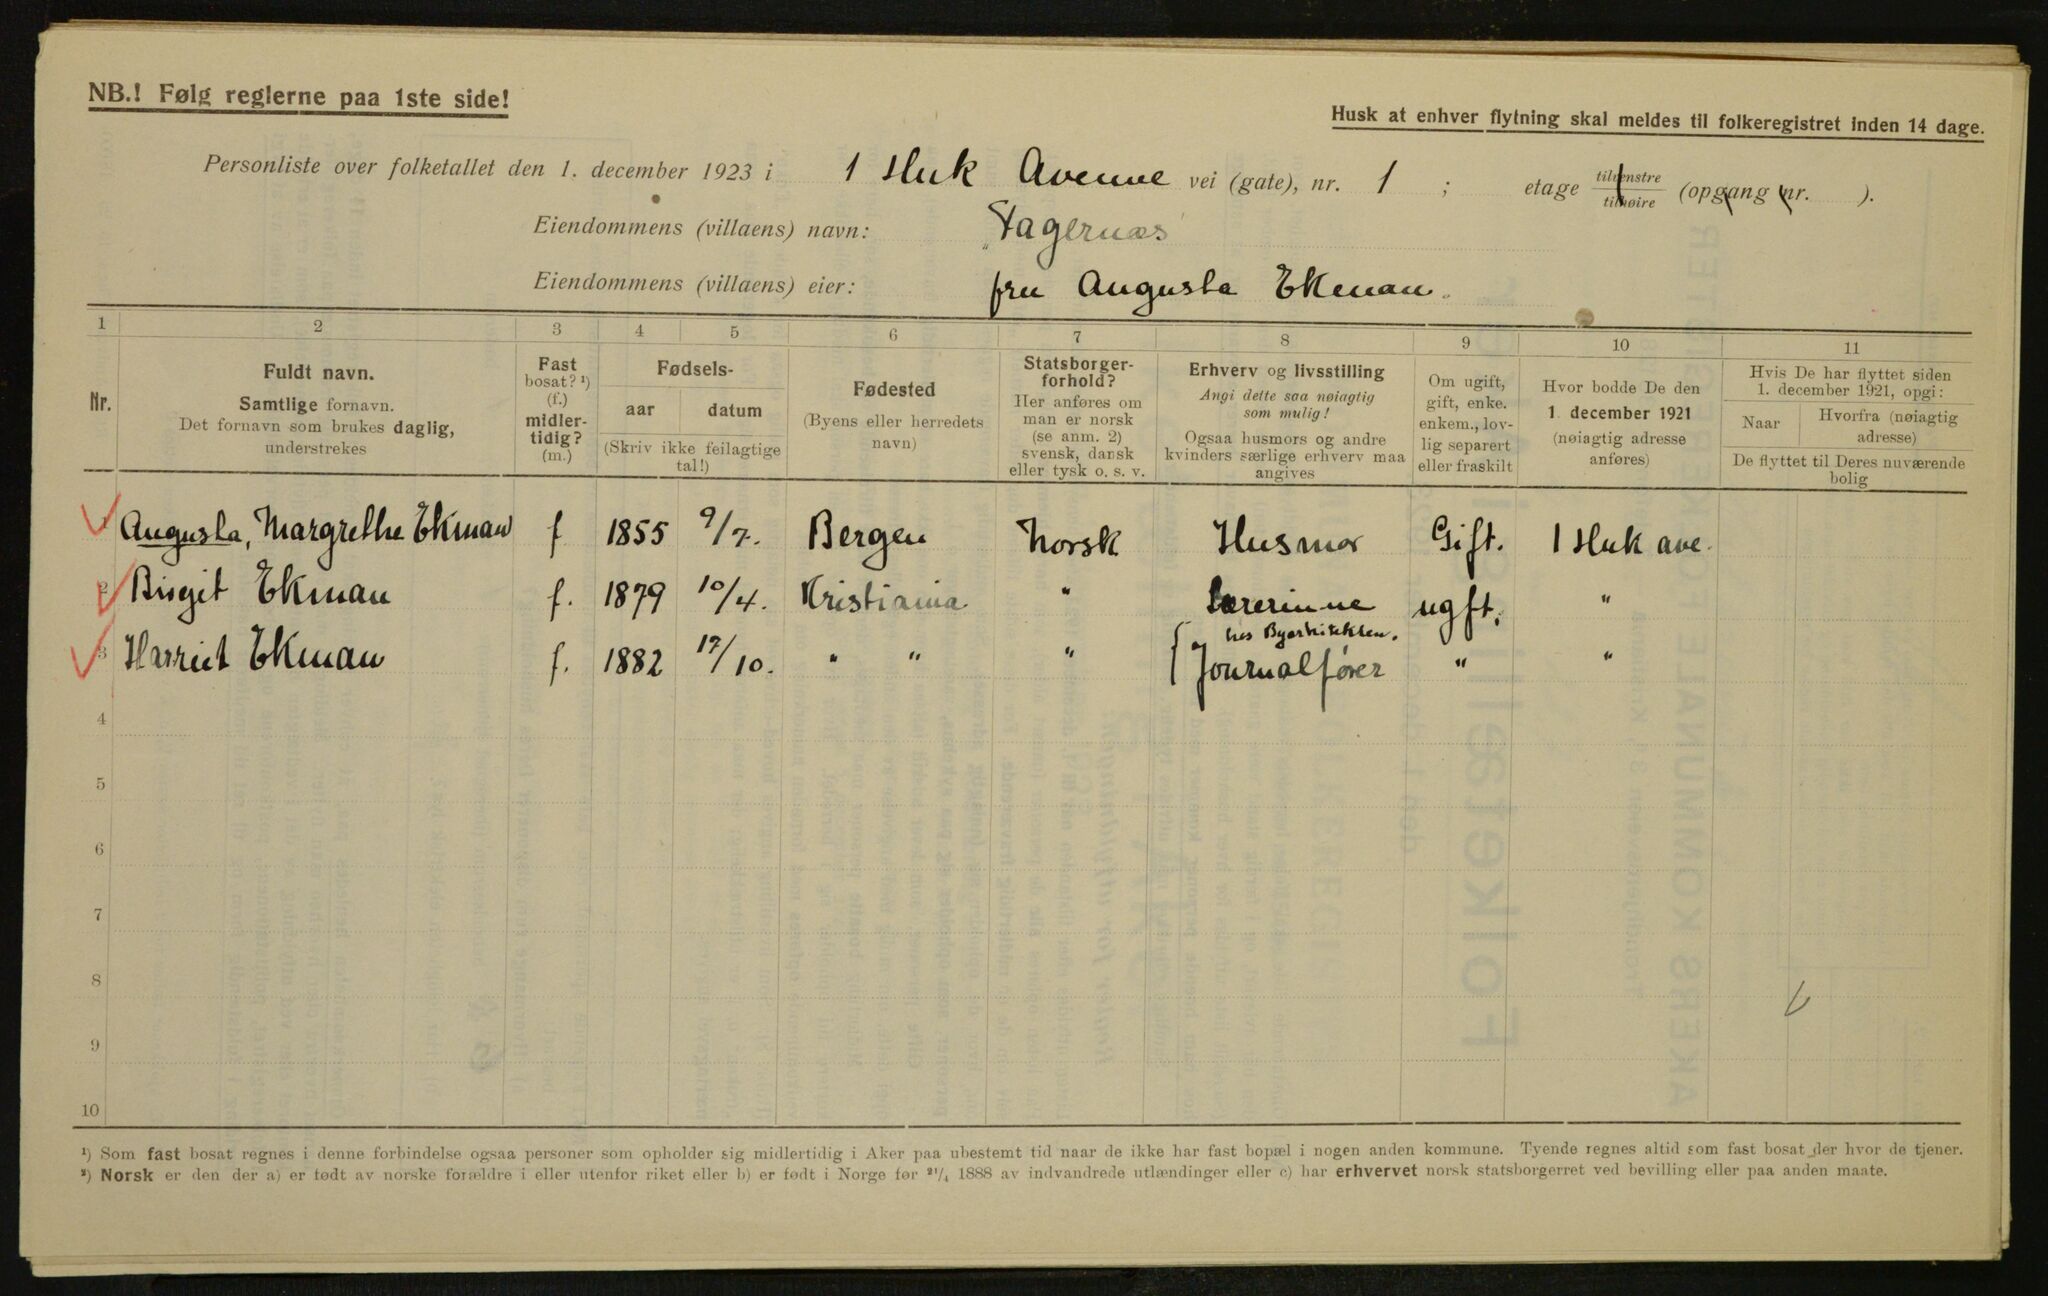 NB.! Følg reglerne paa 1ste side!
Husk at enhver flytning skal meldes til folkeregistret inden 14 dage.
Personliste over folketallet den 1. december 1923 i 1 Huk Avenue vei (gate), nr. 1 ; etage tilvenstre/tilhøire (opgang nr. ).
Eiendommens (villaens) navn: „Fagernæs"
Eiendommens (villaens) eier: fru Augusta Ekman.
1 2 3 4 5 6 7 8 9 10 11
Nr.
Fuldt navn.
Samtlige fornavn.
Det fornavn som brukes daglig,
understrekes
Fast
bosat? ¹)
(f.)
midler-
tidig?
(m.)
Fødsels-
aar datum
(Skriv ikke feilagtige
tal!)
Fødested
(Byens eller herredets
navn)
Statsborger-
forhold?
Her anføres om
man er norsk
(se anm. 2)
svensk, dansk
eller tysk o. s. v.
Erhverv og livsstilling
Angi dette saa nøiagtig
som mulig!
Ogsaa husmors og andre
kvinders særlige erhverv maa
angives
Om ugift,
gift, enke.
enkem., lov-
lig separert
eller fraskilt
Hvor bodde De den
1. december 1921
(nøiagtig adresse
anføres)
Hvis De har flyttet siden
1. december 1921, opgi:
Naar Hvorfra (nøiagtig
adresse)
De flyttet til Deres nuværende
bolig
1 Augusta, Margrethe Ekman f 1855 9/7. Bergen Norsk Husmor Gift. 1 Huk ave.
2 Birgit Ekman f. 1879 10/4. Kristiania " Lærerinne ugft. "
hos Byarkitekten.
3 Harriet Ekman f. 1882 17/10. " " " Journalfører " "
4
5
6
7
8
9
10
¹) Som fast bosat regnes i denne forbindelse ogsaa personer som opholder sig midlertidig i Aker paa ubestemt tid naar de ikke har fast bopæl i nogen anden kommune. Tyende regnes altid som fast bosat der hvor de tjener.
²) Norsk er den der a) er født av norske forældre i eller utenfor riket eller b) er født i Norge før 21/4 1888 av indvandrede utlændinger eller c) har erhvervet norsk statsborgerret ved bevilling eller paa anden maate.